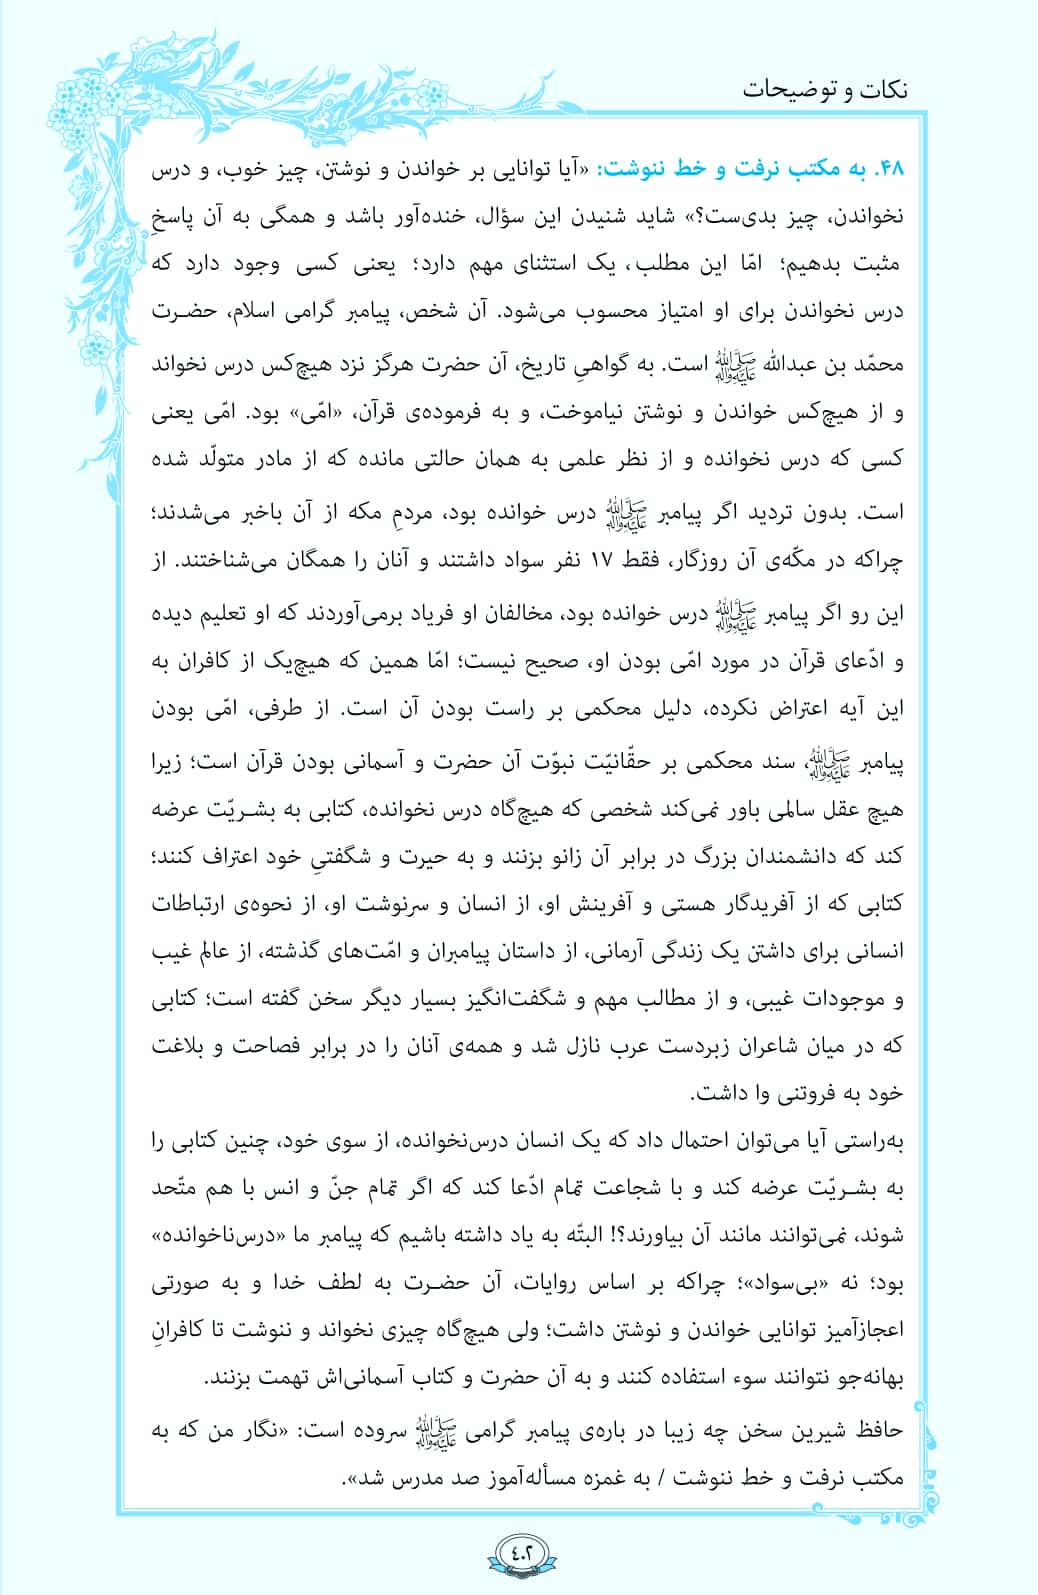 نکات و توضیحات
۴۸. به مکتب نرفت و خط ننوشت: «آیا توانایی بر خواندن و نوشتن، چیز خوب، و درس
نخواندن، چیز بدی‌ست؟» شاید شنیدن این سؤال، خنده‌آور باشد و همگی به آن پاسخِ
مثبت بدهیم؛ امّا این مطلب، یک استثنای مهم دارد؛ یعنی کسی وجود دارد که
درس نخواندن برای او امتیاز محسوب می‌شود. آن شخص، پیامبر گرامی اسلام، حضرت
محمّد بن عبدالله ﷺ است. به گواهیِ تاریخ، آن حضرت هرگز نزد هیچ‌کس درس نخواند
و از هیچ‌کس خواندن و نوشتن نیاموخت، و به فرموده‌ی قرآن، «امّی» بود. امّی یعنی
کسی که درس نخوانده و از نظر علمی به همان حالتی مانده که از مادر متولّد شده
است. بدون تردید اگر پیامبر ﷺ درس خوانده بود، مردمِ مکه از آن باخبر می‌شدند؛
چراکه در مکّه‌ی آن روزگار، فقط ۱۷ نفر سواد داشتند و آنان را همگان می‌شناختند. از
این رو اگر پیامبر ﷺ درس خوانده بود، مخالفان او فریاد برمی‌آوردند که او تعلیم دیده
و ادّعای قرآن در مورد امّی بودن او، صحیح نیست؛ امّا همین که هیچ‌یک از کافران به
این آیه اعتراض نکرده، دلیل محکمی بر راست بودن آن است. از طرفی، امّی بودن
پیامبر ﷺ، سند محکمی بر حقّانیّت نبوّت آن حضرت و آسمانی بودن قرآن است؛ زیرا
هیچ عقل سالمی باور نمی‌کند شخصی که هیچ‌گاه درس نخوانده، کتابی به بشریّت عرضه
کند که دانشمندان بزرگ در برابر آن زانو بزنند و به حیرت و شگفتیِ خود اعتراف کنند؛
کتابی که از آفریدگار هستی و آفرینش او، از انسان و سرنوشت او، از نحوه‌ی ارتباطات
انسانی برای داشتن یک زندگی آرمانی، از داستان پیامبران و امّت‌های گذشته، از عالم غیب
و موجودات غیبی، و از مطالب مهم و شگفت‌انگیز بسیار دیگر سخن گفته است؛ کتابی
که در میان شاعران زبردست عرب نازل شد و همه‌ی آنان را در برابر فصاحت و بلاغت
خود به فروتنی وا داشت.
به‌راستی آیا می‌توان احتمال داد که یک انسان درس‌نخوانده، از سوی خود، چنین کتابی را
به بشریّت عرضه کند و با شجاعت تمام ادّعا کند که اگر تمام جنّ و انس با هم متّحد
شوند، نمی‌توانند مانند آن بیاورند؟! البتّه به یاد داشته باشیم که پیامبر ما «درس‌ناخوانده»
بود؛ نه «بی‌سواد»؛ چراکه بر اساس روایات، آن حضرت به لطف خدا و به صورتی
اعجازآمیز توانایی خواندن و نوشتن داشت؛ ولی هیچ‌گاه چیزی نخواند و ننوشت تا کافرانِ
بهانه‌جو نتوانند سوء استفاده کنند و به آن حضرت و کتاب آسمانی‌اش تهمت بزنند.
حافظ شیرین سخن چه زیبا در باره‌ی پیامبر گرامی ﷺ سروده است: «نگار من که به
مکتب نرفت و خط ننوشت / به غمزه مسأله‌آموز صد مدرس شد».
٤٠٢